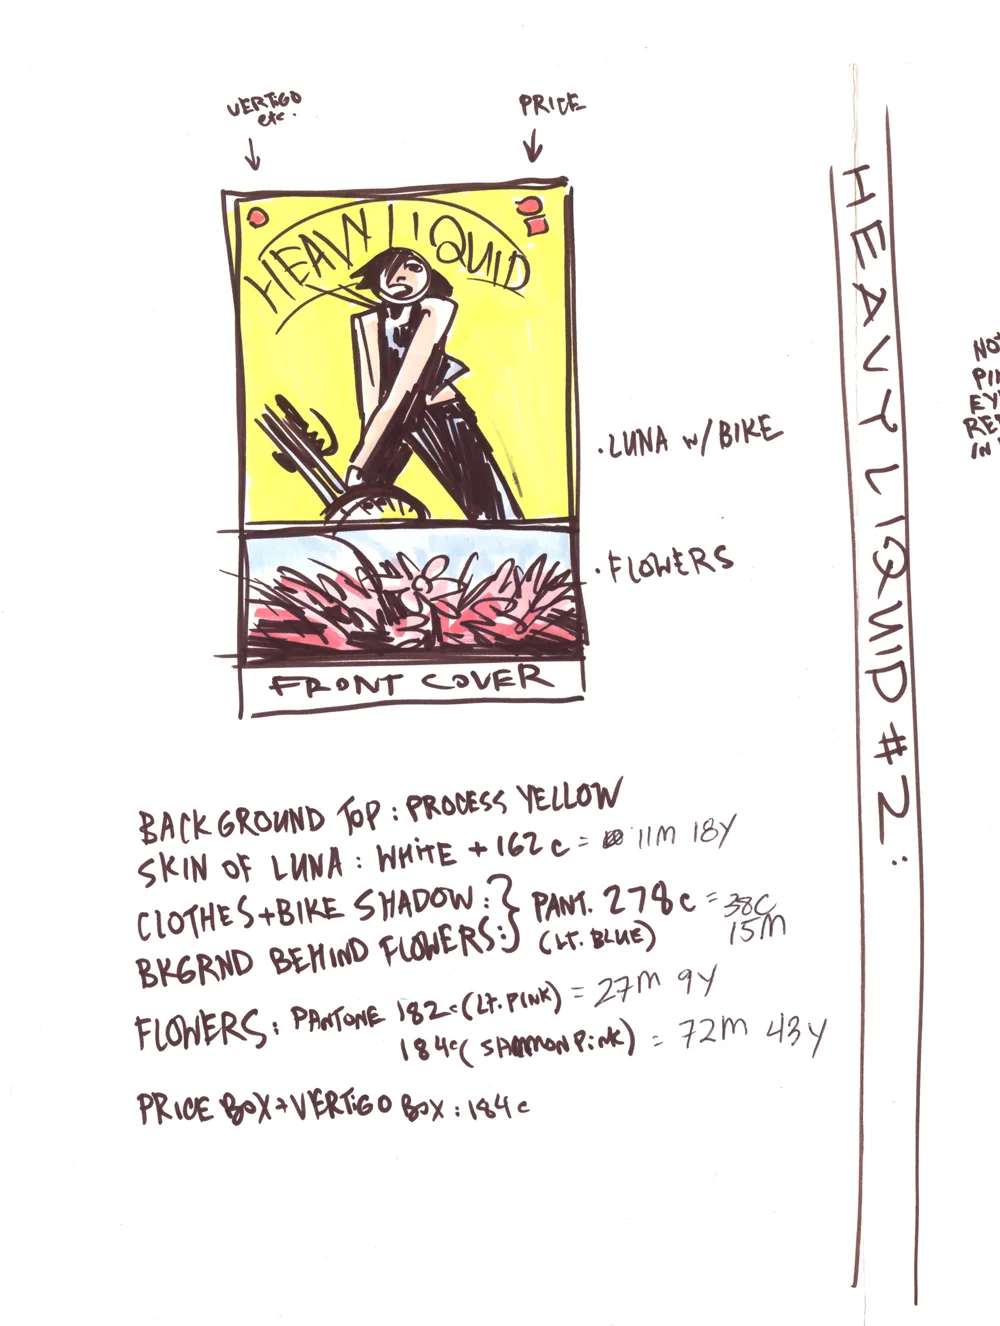 VERTIGO
etc.
PRICE
HEAVY LIQUID
• LUNA w/ BIKE
• FLOWERS
FRONT COVER
BACKGROUND TOP: PROCESS YELLOW
SKIN OF LUNA: WHITE + 162 c = 11M 18Y
CLOTHES + BIKE SHADOW: } PANT. 278 c = 38C
15M
BKGRND BEHIND FLOWERS: (LT. BLUE)
FLOWERS: PANTONE 182 c (LT. PINK) = 27M 9Y
184 c (SALMON PINK) = 72M 43Y
PRICE BOX + VERTIGO BOX: 184 c
HEAVY LIQUID #2:
IN